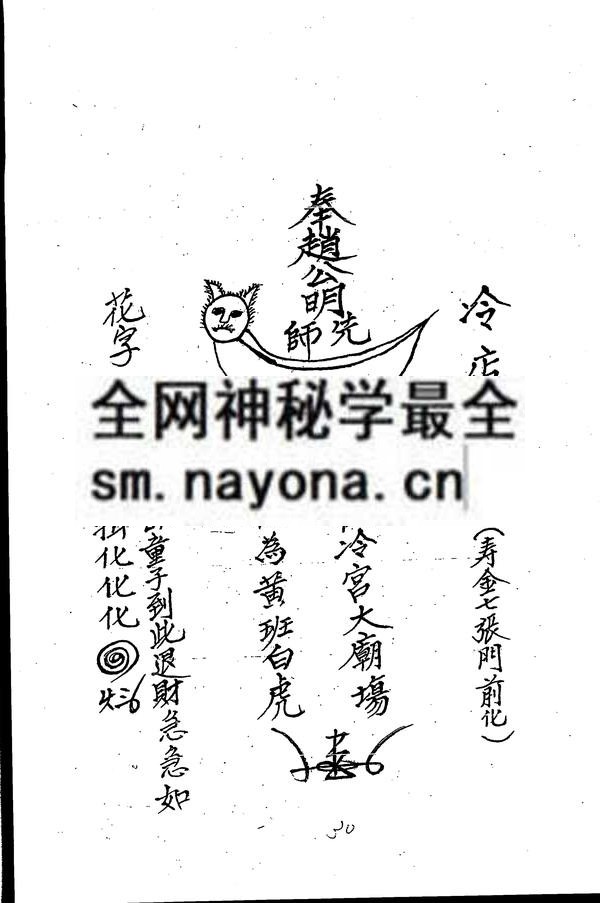 冷店
(寿金七張門前化)
奉趙公明
先師
冷宮大廟場
為黃班白虎
花字
童子到此退財急急如
化化化
全网神秘学最全
sm.nayona.cn
30